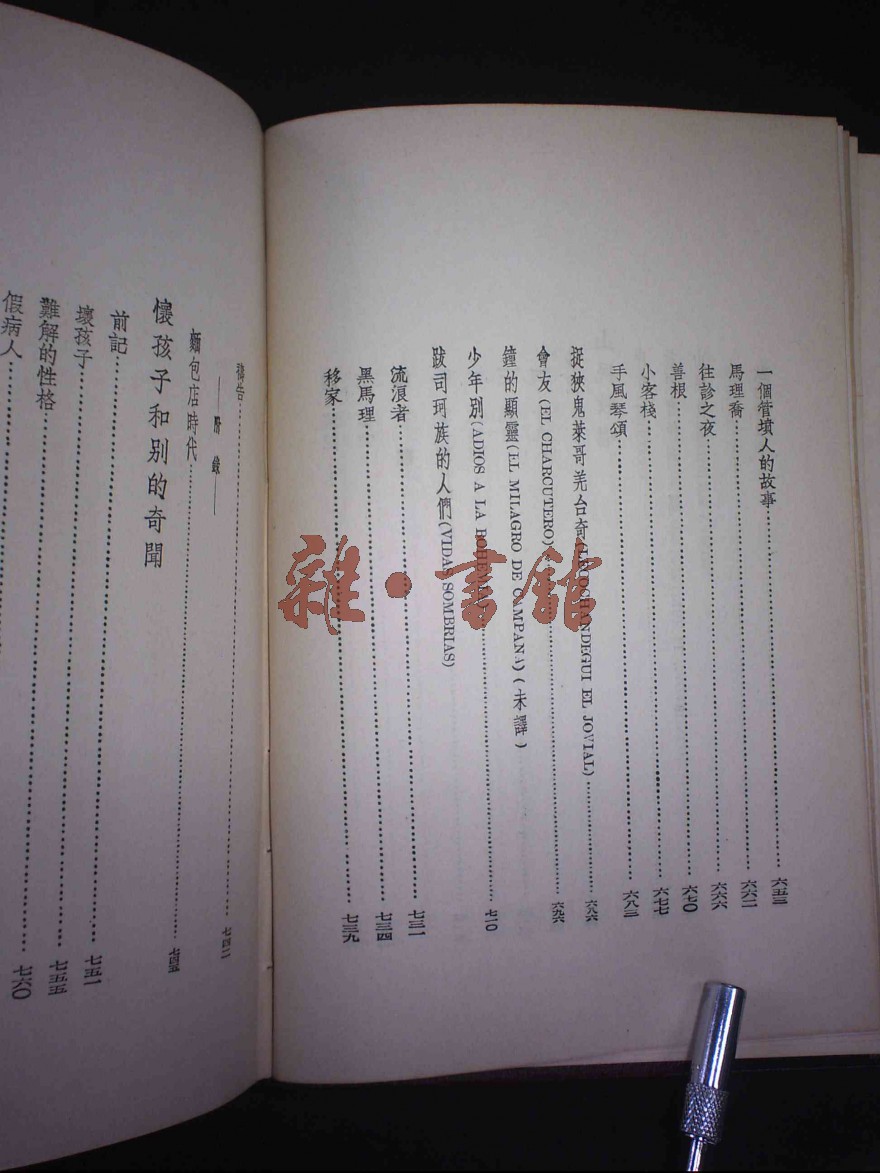 一個管墳人的故事……六五三
馬理喬……六六二
往診之夜……六六六
善根……六七〇
小客棧……六七七
手風琴頌……六八三
捉狹鬼萊哥羌台奇(LECOCHANDEGUI EL JOVIAL)……六八六
會友(EL CHARCUTERO)……六九六
鐘的顯靈(EL MILAGRO DE CAMPANA)(未譯)
少年別(ADIOS A LA BOHEMIA)……七一〇
跋司珂族的人們(VIDAS SOMBRIAS)
流浪者……七三一
黑馬理……七三四
移家……七三九
禱告……七四二
——附錄——
麵包店時代……七四五
懷孩子和別的奇聞
前記
壞孩子……七五一
難解的性格……七五五
假病人……七六〇
雜·書館